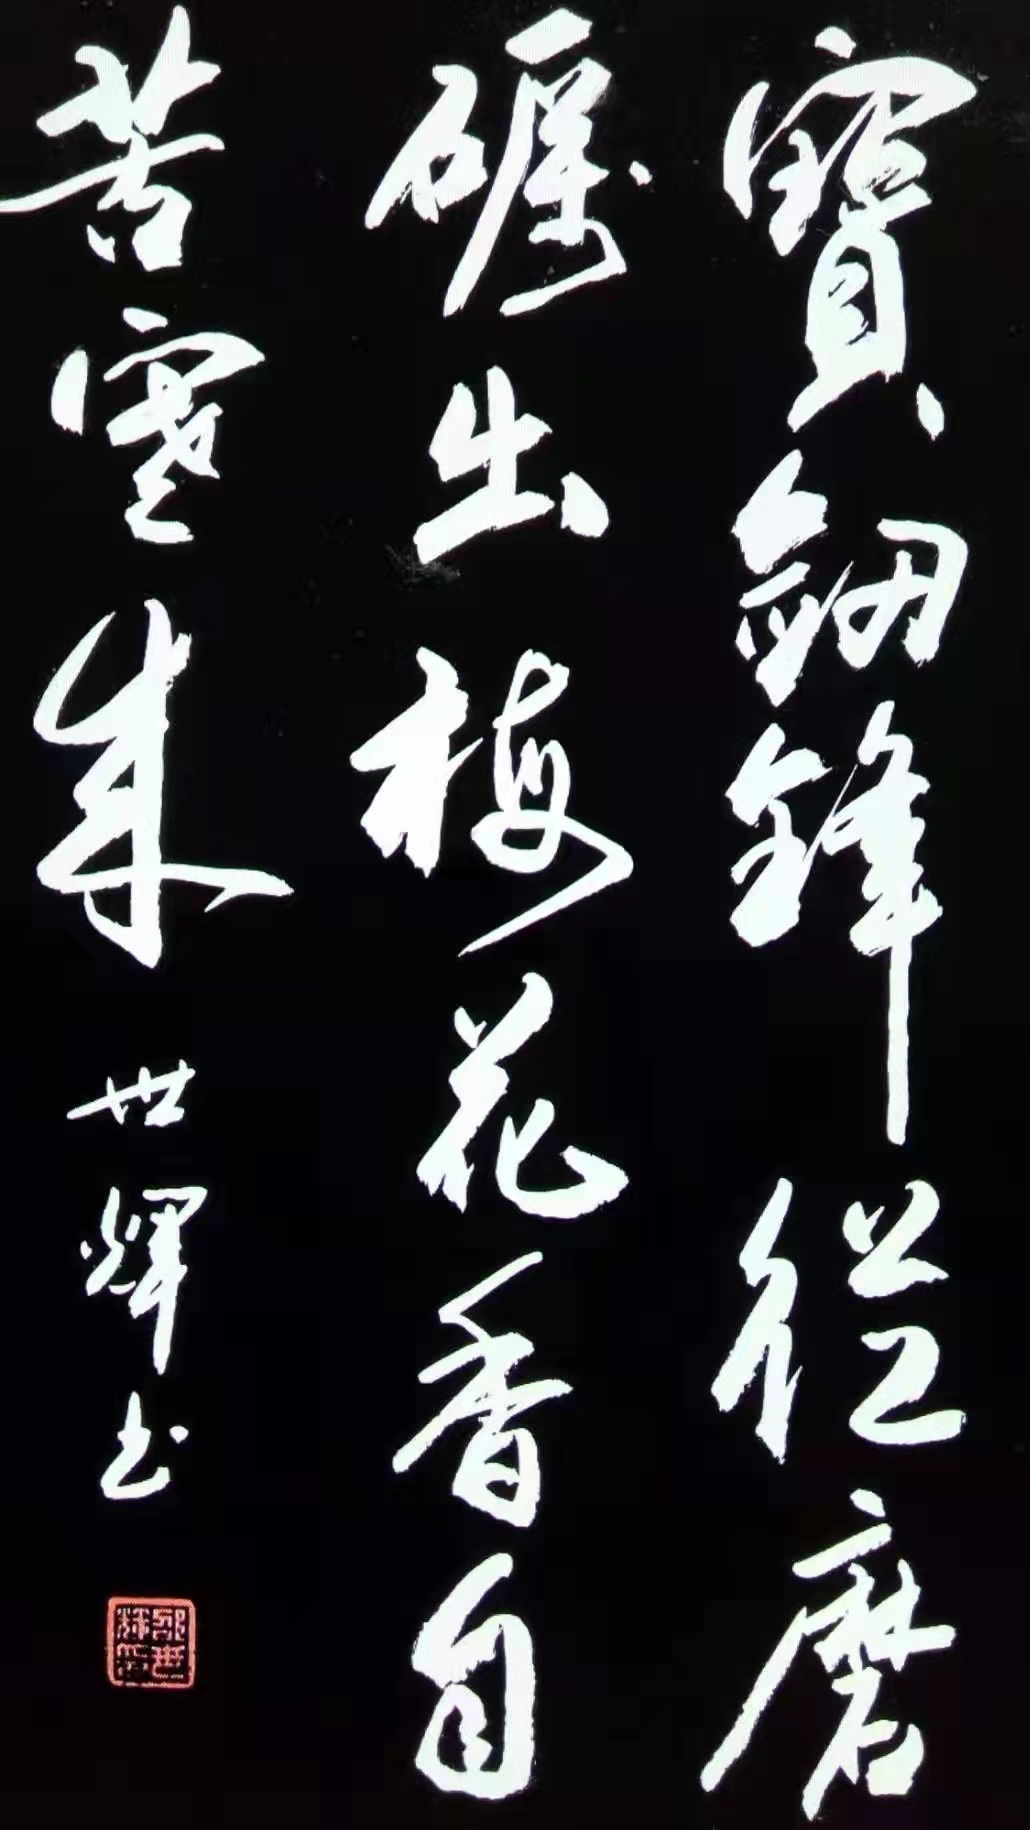 寶劍鋒從磨
礪出梅花香自
苦寒來
世輝书